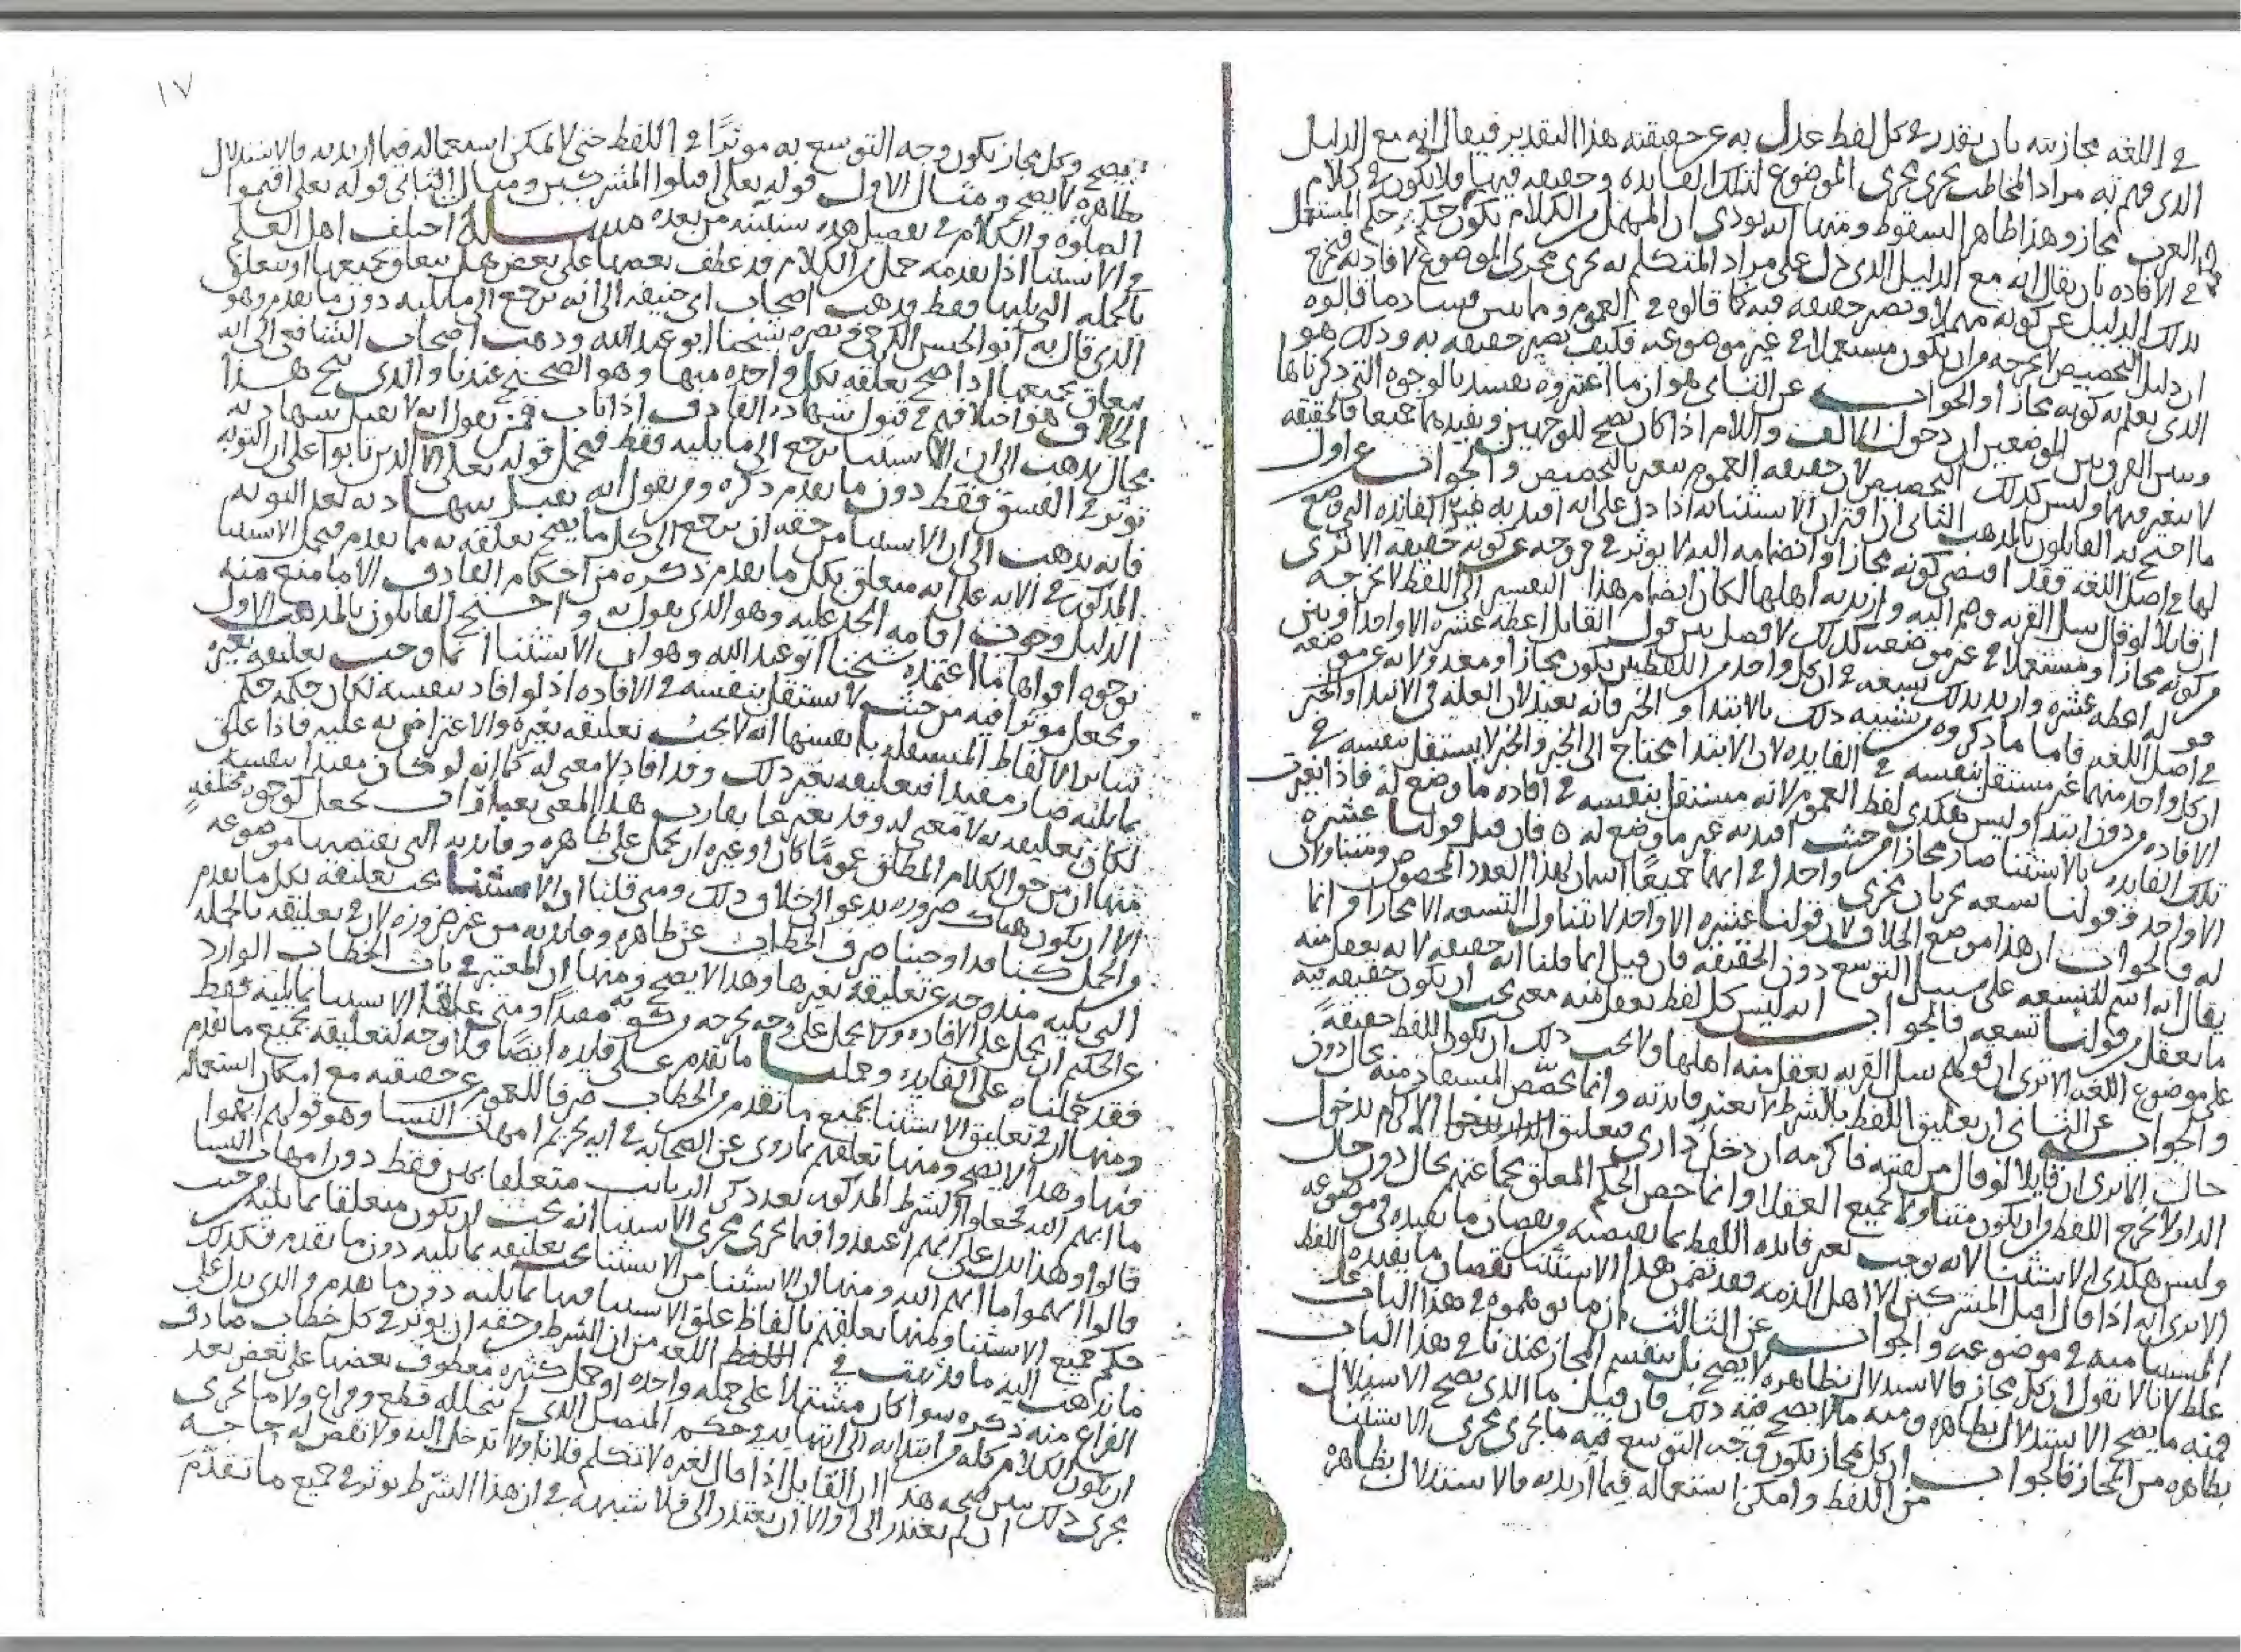 في اللغه مجازيته بان يقدر في كل لفظ عدل به عن حقيقته هذا التقدير فيقال انه مع الدليل
الذي فهم به مراد المخاطب يجري مجرى الموضوع لتلك الفايده وحقيقه فيها فلا يكون في كلام
العرب مجاز وهذا ظاهر السقوط ومنها انه يودي الى ان المهمل من الكلام يكون حكمه حكم المستعمل
في الافاده بان يقال انه مع الدليل الذي دل على مراد المتكلم به يجري مجرى الموضوع لافادته فيخرج
بذلك الدليل عن كونه مهملا ويصير حقيقه فيه كما قالوه في العموم ومما يبين فساد ما قالوه
ان دليل التخصيص لا يخرجه من ان يكون مستعملا في غير موضوعه فكيف يصير حقيقه به وذلك هو
الذي يعلم به كونه مجازا والجواب عن الثاني هو ان ما اعتبروه يفسد بالوجوه التي ذكرناها
وبين الفرق بين الموضعين ان دخول الالف واللام اذا كان يصح للوجهين ويفيدهما جميعا فالحقيقه
لا تتغير فيهما وليس كذلك التخصيص لان حقيقه العموم تتغير بالتخصيص والجواب عن اول
ما احتج به القايلون بالمذهب الثاني ان اقتران الاستثنا به اذا دل على انه افيد به غير الفايده التي وضع
لها في اصل اللغه فقد اقتضى كونه مجازا وانضمامه اليه لا يوثر في خروجه عن كونه حقيقه الا ترى
ان قايلا لو قال سل القريه وضم اليه واريد به اهلها لكان انضمام هذا التفسير الى اللفظ لا يخرجه
من كونه مجازا ومستعملا في غير موضعه كذلك لا فصل بين قول القايل اعطه عشره الا واحدا وبين
قوله اعطه عشره واريد بذلك تسعه في ان كل واحد من اللفظين يكون مجازا ومعدولا به عن موضعه
في اصل اللغه فاما ما ذكروه من تشبيه ذلك بالابتدا والخبر فانه بعيد لان العله في الابتدا والخبر
ان كل واحد منهما غير مستقل بنفسه في الفايده لان الابتدا يحتاج الى الخبر والخبر لا يستقل بنفسه في
الافاده من دون ابتدا وليس هكذى لفظ العموم لانه مستقل بنفسه في افاده ما وضع له فاذا تغيرت
تلك الفايده بالاستثنا صار مجازا من حيث افيد به غير ما وضع له ه فان قيل قولنا عشره
الا واحد وقولنا تسعه يجريان مجرى واحدا في انهما جميعًا اسمان لهذا العدد المخصوص ومتناولان
له فالجواب ان هذا موضع الخلاف لان قولنا عشره الا واحد لا يتناول التسعه الا مجازا وانما
يقال انه اسم للتسعه على سبيل التوسع دون الحقيقه فان قيل انما قلنا انه حقيقه لانه يعقل منه
ما يعقل من قولنا تسعه فالجواب انه ليس كل لفظ يعقل منه معنى يجب ان يكون حقيقه فيه
على موضوع اللغه الا ترى ان قولهم سل القريه يعقل منه اهلها ولا يجب ذلك ان يكون اللفظ حقيقةً
والجواب عن الثاني ان تعليق اللفظ بالشرط لا يغير فايدته وانما يخصص المستفاد منه بحال دون
حال الا ترى ان قايلا لو قال من لقيته فاكرمه ان دخل داري فتعليق الاكرام بدخول
الدار لا يخرج اللفظ من ان يكون متناولا لجميع العقلا وانما خص الحكم المعلق بجماعتهم بحال دون حال
وليس هكذى الاستثنا لانه يوجب تغير فايده اللفظ بما يقتضيه من نقصان ما يفيده في موضوعه
الا ترى انه اذا قال اقتل المشركين الا اهل الذمه فقد تضمن هذا الاستثنا نقصان ما يفيده اللفظ
المستثنا منه في موضوعه والجواب عن الثالث ان ما توهموه في هذا الباب
غلط لانا لا نقول ان كل مجاز فالاستدلال بظاهره لا يصح بل ينقسم المجاز عندنا في هذا الباب
فمنه ما يصح الاستدلال بظاهره ومنه ما لا يصح فيه ذلك فان قيل ما الذي يصح الاستدلال
بظاهره من المجاز فالجواب ان كل مجاز يكون وجه التوسع فيه ما يجري مجرى الاستثنا
من اللفظ وامكن استعماله فيما اريد به فالاستدلال بظاهره
١٧
يصح وكل مجاز يكون وجه التوسع به موثرًا في اللفظ حتى لا يمكن استعماله فيما اريد به فالاستدلال
بظاهره لا يصح ومثال الاول قوله تعالى اقتلوا المشركين ومثال الثاني قوله تعالى اقيموا
الصلوه والكلام في تفصيل هذه سنبينه من بعده مسالة اختلف اهل العلم
في الاستثنا اذا تقدمه جمل من الكلام قد عطف بعضها على بعض هل يتعلق بجميعها او يتعلق
بالجمله التي يليها فقط فذهب اصحاب ابي حنيفه الى انه يرجع الى ما يليه دون ما تقدم وهو
الذي قال به ابو الحسن الكرخي ونصره شيخنا ابو عبد الله وذهب اصحاب الشافعي الى انه
يتعلق بجميعها اذا صح تعلقه بكل واحده منها وهو الصحيح عندنا والذي ينتج هذا
الخلاف هو اختلافهم في قبول شهاده القاذف اذا تاب فمن يقول انه لا تقبل شهادته
بحال يذهب الى ان الاستثنا يرجع الى ما يليه فقط فيحمل قوله تعالى الا الذين تابوا على ان التوبه
توثر في الفسق فقط دون ما تقدم ذكره ومن يقول انه تقبل شهادته بعد التوبه
فانه يذهب الى ان الاستثنا من حقه ان يرجع الى كل ما يصح تعلقه به مما تقدم فيحمل الاستثنا
المذكور في الايه على انه متعلق بكل ما تقدم ذكره من احكام القاذف الا ما منع منه
الدليل من وجوب اقامه الحد عليه وهو الذي نقول به واحتج القايلون بالمذهب الاول
بوجوه اقواها ما اعتمده شيخنا ابو عبد الله وهو ان الاستثنا انما وجب تعليقه بغيره
وجعل موثرا فيه من حيث لا يستقل بنفسه في الافاده اذ لو افاد بنفسه لكان حكمه حكم
ساير الالفاظ المستقله بانفسها انه لا يجب تعليقه بغيره والاعتراض به عليه فاذا علق
بما يليه صار مفيدا فتعليقه بغير ذلك وقد افاد لا معنى له كما انه لو كان مفيدا بنفسه
لكان تعليقه به لا معنى له وقد يعبر عما يقارب هذا المعنى بعبارات تجعل كوجوه مختلفه
منها ان من حق الكلام المطلق عمومًا كان او غيره ان يحمل على ظاهره وفايدته التي يقتضيها موضوعه
الا ان يكون هناك ضروره يدعو الى خلاف ذلك ومتى قلنا ان الاستثنا يجب تعليقه بكل ما تقدم
والجمل كنا قد اوجبنا صرف الخطاب عن ظاهره وفايدته من غير ضروره لان في تعليقه بالجمله
التي تليه مندوحه عن تعليقه بغيرها وهذا لا يصح ومنها ان المعتبر في باب الخطاب الوارد
عن الحكيم ان يحمل على الافاده ولا يحمل على وجه يخرجه من كونه مفيدًا ومتى علقنا الاستثنا بما يليه فقط
فقد حملناه على الفايده وحملنا ما تقدم على فايده ايضًا فلا وجه لتعليقه بجميع ما تقدم
ومنها ان في تعليق الاستثنا بجميع ما تقدم من الخطاب صرفا للعموم عن حقيقته مع امكان استعماله
فيها وهذا لا يصح ومنها تعلقهم بما روي عن الصحابه في ايه تحريم امهات النسا وهو قولهم ابهموا
ما ابهم الله فجعلوا الشرط المذكور بعد ذكر الربايب متعلقا بهن فقط دون امهات النسا
قالوا وهذا يدل على انهم اعتقدوا فيما يجري مجرى الاستثنا انه يجب ان يكون متعلقا بما يليه من حيث
قالوا ابهموا ما ابهم الله ومنها ان الاستثنا من الاستثنا يجب تعليقه بما يليه دون ما تقدم فكذلك
حكم جميع الاستثنا ومنها تعلقهم بالفاظ علق الاستثنا فيها بما يليه دون ما تقدم والذي يدل على
ما نذهب اليه ما قد ثبت في اللغه من ان الشرط من حقه ان يوثر في كل خطاب صادف
الفراغ منه ذكره سوا كان مشتملا على جمله واحده او جمل كثيره معطوف بعضها على بعض بعد
ان يكون الكلام كله من ابتدايه الى انتهايه في حكم المتصل الذي لم يتخلله قطع وفراغ ولا ما يجري
مجرى ذلك يبين صحه هذا ان القايل اذا قال لغيره لا تكلم فلانا ولا تدخل اليه ولا تقض له حاجه
ان لم يعتذر الي او الا ان يعتذر الي فلا شبهه في ان هذا الشرط يوثر في جميع ما تقدم